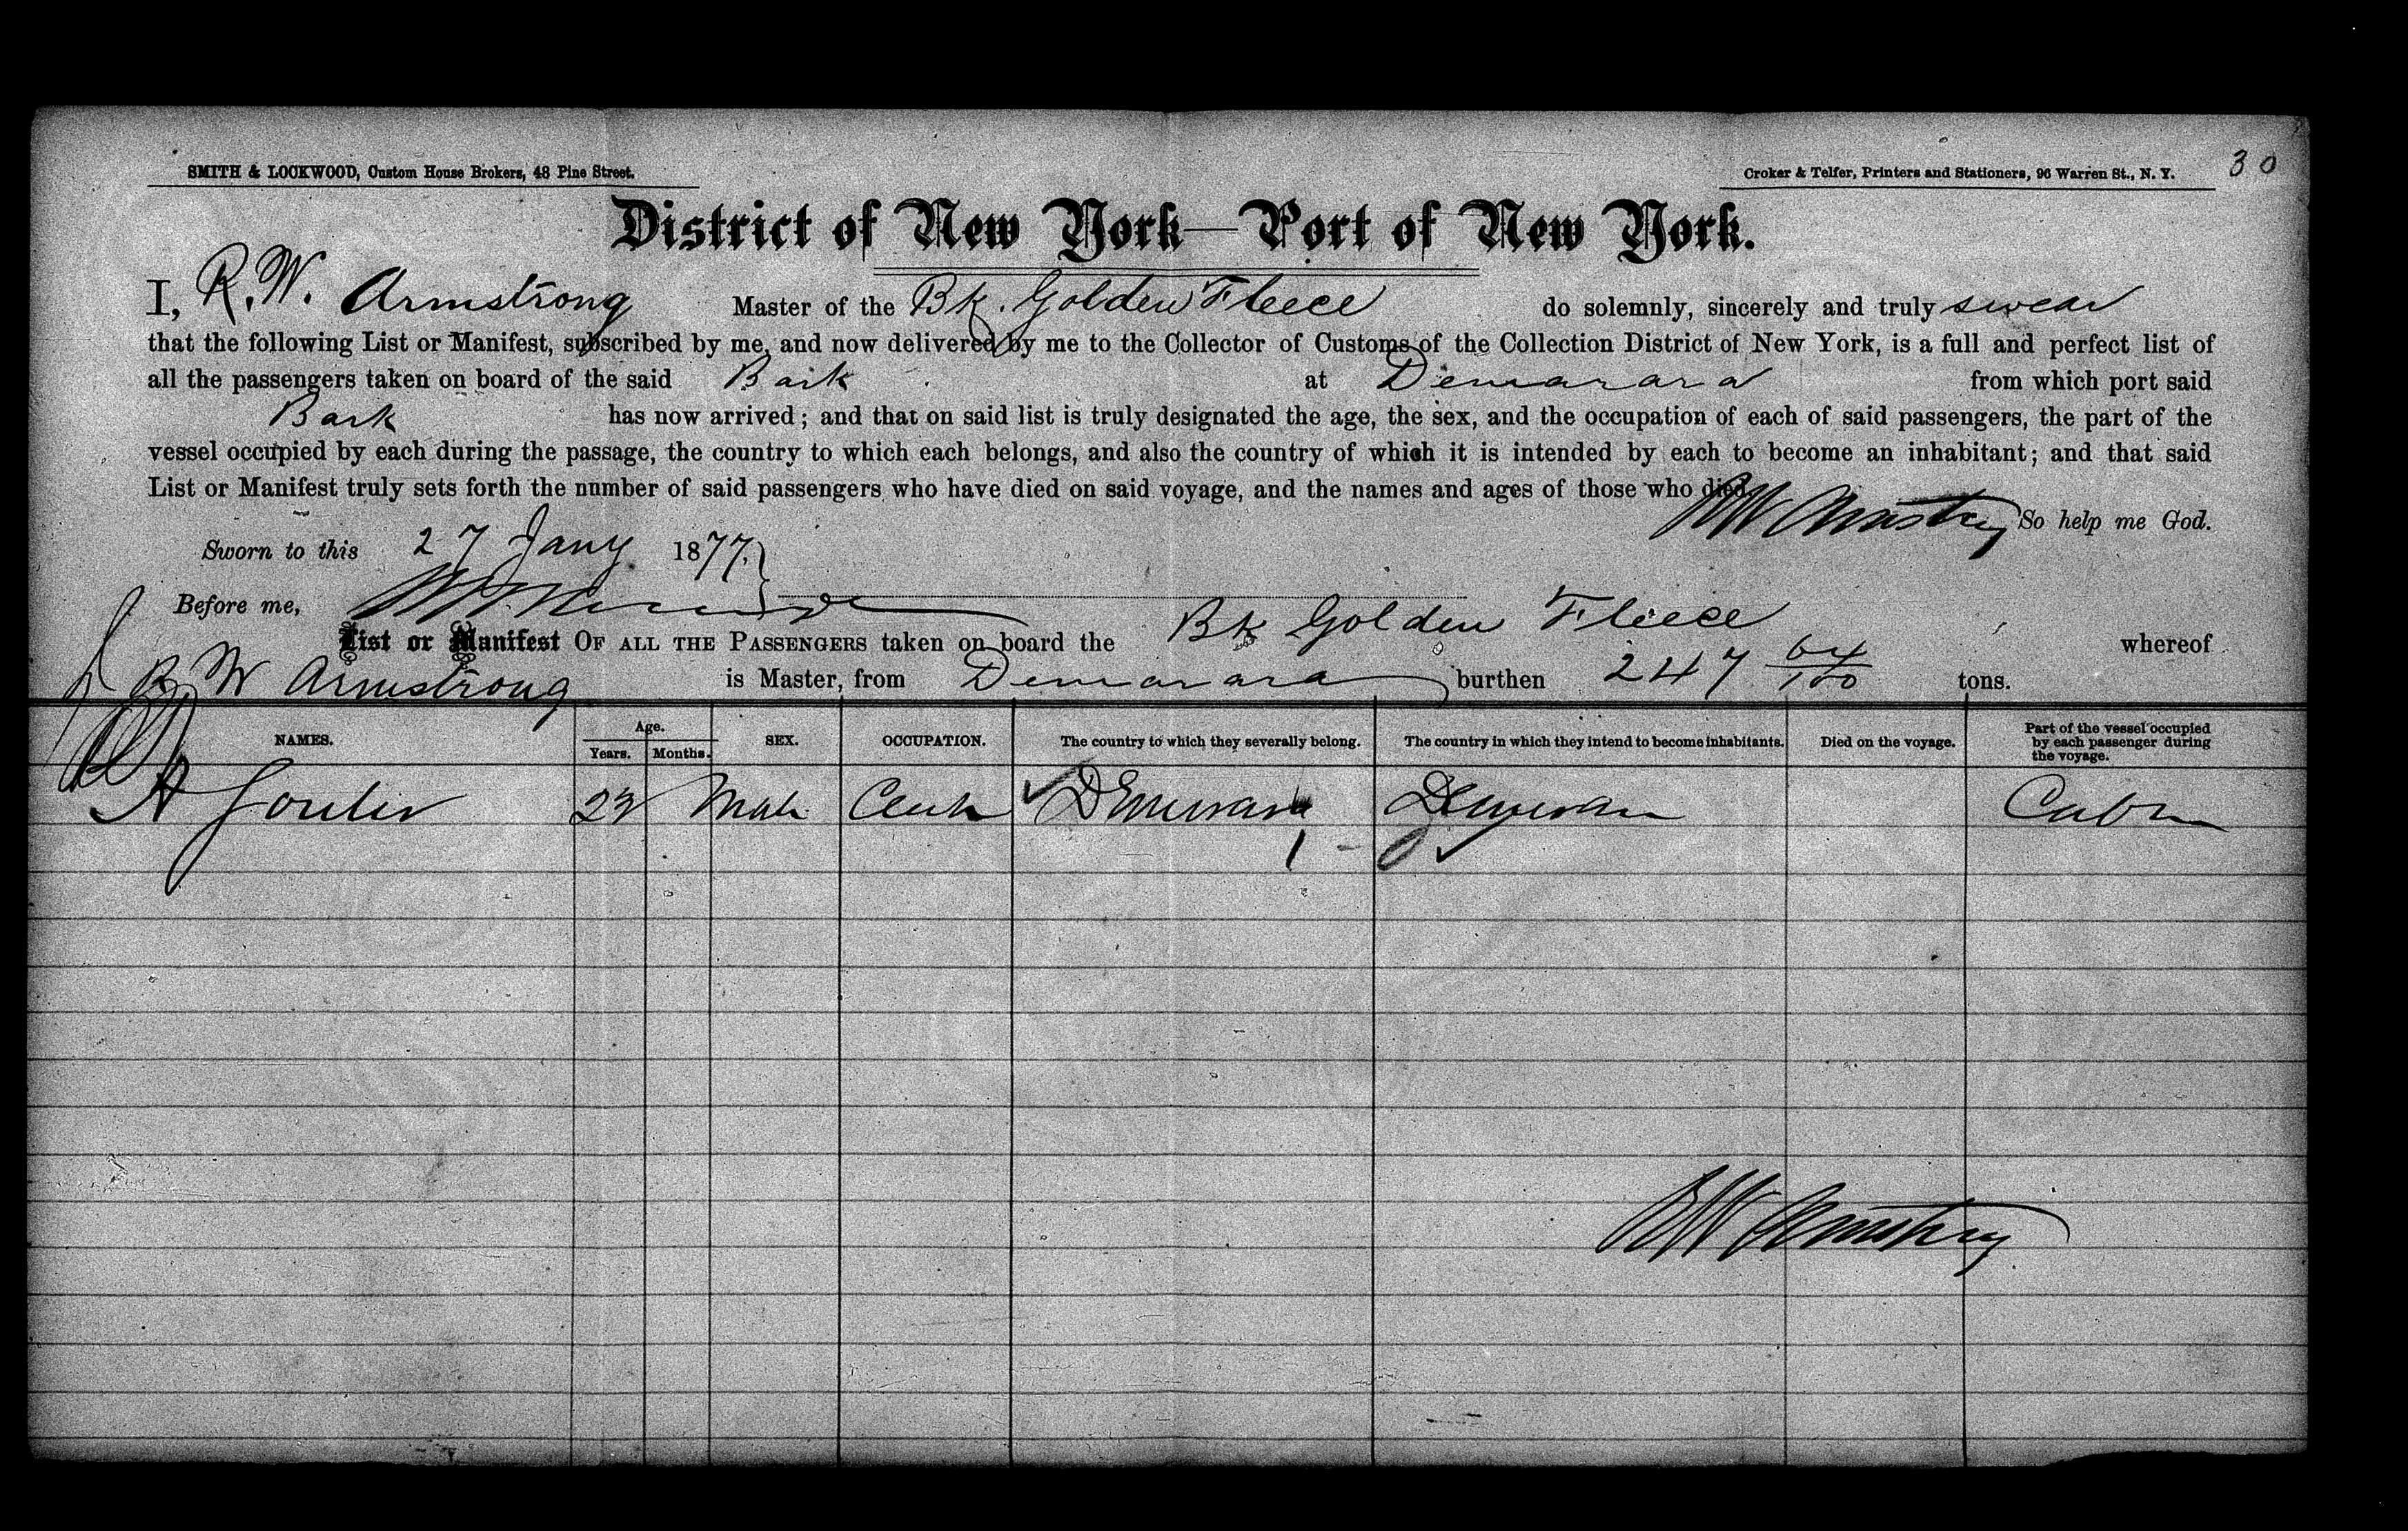 SMITH & LOCKWOOD, Custom House Brokers, 48 Pine Street.
Croker & Telfer, Printers and Stationers, 96 Warren St., N. Y.
30
District of New York—Port of New York.
I, R. W. Armstrong Master of the Bk. Golden Fleece do solemnly, sincerely and truly swear
that the following List or Manifest, subscribed by me, and now delivered by me to the Collector of Customs of the Collection District of New York, is a full and perfect list of
all the passengers taken on board of the said Bark at Demarara from which port said
Bark has now arrived; and that on said list is truly designated the age, the sex, and the occupation of each of said passengers, the part of the
vessel occupied by each during the passage, the country to which each belongs, and also the country of which it is intended by each to become an inhabitant; and that said
List or Manifest truly sets forth the number of said passengers who have died on said voyage, and the names and ages of those who died.
RW Armstrong So help me God.
Sworn to this 27 Jany 1877.
Before me,
List or Manifest OF ALL THE PASSENGERS taken on board the Bk Golden Fleece whereof
R W Armstrong is Master, from Demarara burthen 247 64/100 tons.
NAMES. Age. Years. Months. SEX. OCCUPATION. The country to which they severally belong. The country in which they intend to become inhabitants. Died on the voyage. Part of the vessel occupied by each passenger during the voyage.
A 23 Male Clerk Demerara Demerara Cabin
1 - 0
RW Armstrong